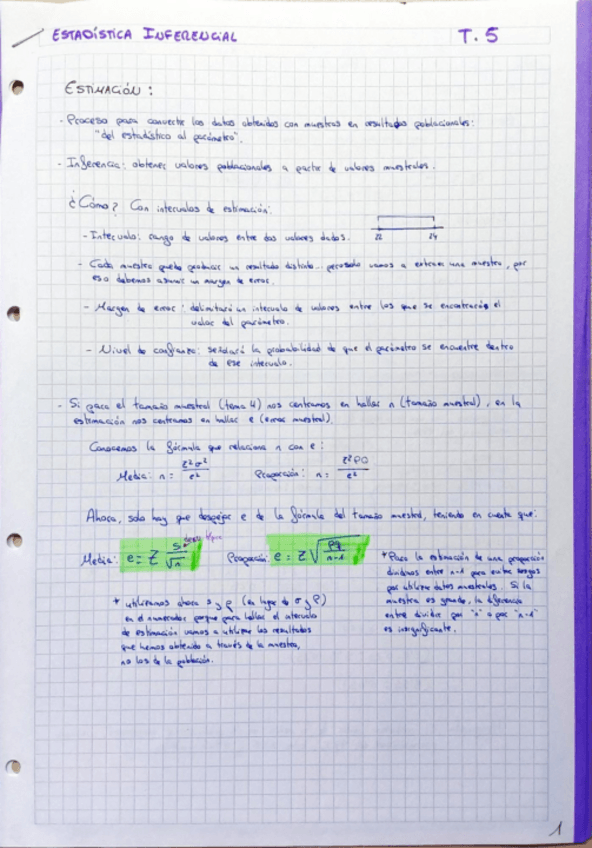 ESTADÍSTICA INFERENCIAL T. 5
ESTIMACIÓN :
- Proceso para convertir los datos obtenidos con muestras en resultados poblacionales:
"del estadístico al parámetro".
- Inferencia: obtener valores poblacionales a partir de valores muestrales.
¿Cómo? Con intervalos de estimación:
- Intervalo: rango de valores entre dos valores dados. 22 24
- Cada muestra puede producir un resultado distinto... pero solo vamos a extraer una muestra, por
eso debemos asumir un margen de error.
- Margen de error: delimitará un intervalo de valores entre los que se encontrará el
valor del parámetro.
- Nivel de confianza: señalará la probabilidad de que el parámetro se encuentre dentro
de ese intervalo.
- Si para el tamaño muestral (tema 4) nos centramos en hallar n (tamaño muestral), en la
estimación nos centramos en hallar e (error muestral).
Conocemos la fórmula que relaciona n con e:
Media: n = Z²σ² / e² Proporción: n = Z²PQ / e²
Ahora, solo hay que despejar e de la fórmula del tamaño muestral, teniendo en cuenta que:
Media: e = Z s / √n Proporción: e = Z √ pq / n-1
* Para la estimación de una proporción
dividimos entre n-1 para evitar sesgos
por utilizar datos muestrales. Si la
muestra es grande, la diferencia
entre dividir por "n" o por "n-1"
es insignificante.
* utilizamos ahora s y p (en lugar de σ y P)
en el numerador porque para hallar el intervalo
de estimación vamos a utilizar los resultados
que hemos obtenido a través de la muestra,
no los de la población.
1